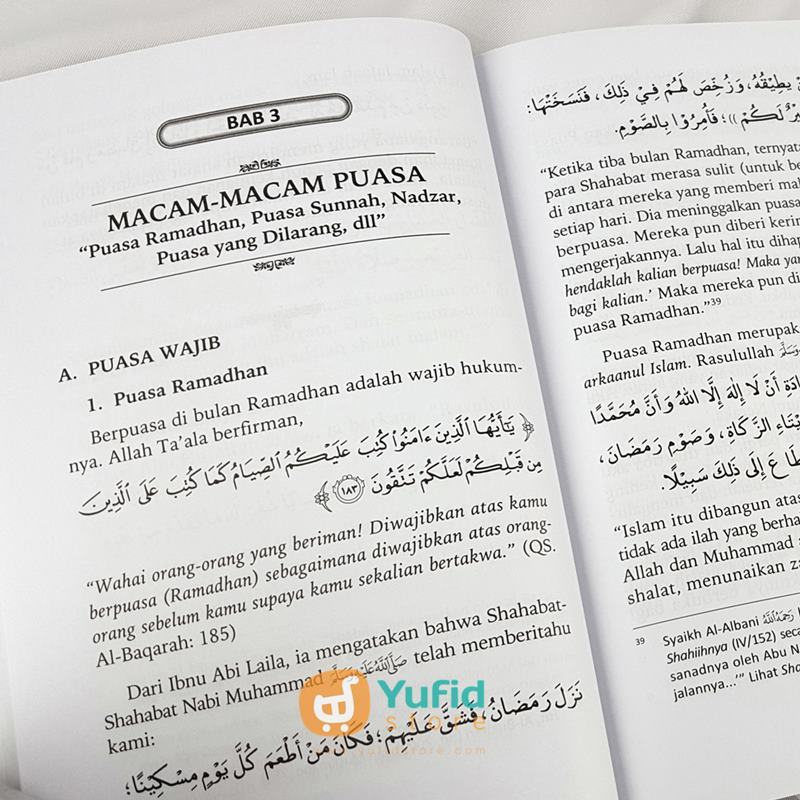 BAB 3
MACAM-MACAM PUASA
“Puasa Ramadhan, Puasa Sunnah, Nadzar,
Puasa yang Dilarang, dll”
A. PUASA WAJIB
1. Puasa Ramadhan
Berpuasa di bulan Ramadhan adalah wajib hukum-
nya. Allah Ta’ala berfirman,
﴿ يَٰٓأَيُّهَا ٱلَّذِينَ ءَامَنُوا۟ كُتِبَ عَلَيْكُمُ ٱلصِّيَامُ كَمَا كُتِبَ عَلَى ٱلَّذِينَ
مِن قَبْلِكُمْ لَعَلَّكُمْ تَتَّقُونَ ١٨٣ ﴾
“Wahai orang-orang yang beriman! Diwajibkan atas kamu
berpuasa (Ramadhan) sebagaimana diwajibkan atas orang-
orang sebelum kamu supaya kamu sekalian bertakwa.” (QS.
Al-Baqarah: 185)
Dari Ibnu Abi Laila, ia mengatakan bahwa Shahabat-
Shahabat Nabi Muhammad ﷺ telah memberitahu
kami:
نَزَلَ رَمَضَانُ، فَشَقَّ عَلَيْهِمْ؛ فَكَانَ مَنْ أَطْعَمَ كُلَّ يَوْمٍ مِسْكِيْنًا؛
يَطِيْقُهُ، وَرُخِّصَ لَهُمْ فِيْ ذَلِكَ، فَنَسَخَتْهَا:
لَكُمْ))؛ فَأُمِرُوْا بِالصَّوْمِ.
“Ketika tiba bulan Ramadhan, ternyata
para Shahabat merasa sulit (untuk be
di antara mereka yang memberi mak
setiap hari. Dia meninggalkan puasa
berpuasa. Mereka pun diberi kerin
mengerjakannya. Lalu hal itu dihap
hendaklah kalian berpuasa! Maka yan
bagi kalian.’ Maka mereka pun di
puasa Ramadhan.”39
Puasa Ramadhan merupak
arkaanul Islam. Rasulullah ﷺ
أَنْ لَا إِلٰهَ إِلَّا اللهُ وَأَنَّ مُحَمَّدًا
الزَّكَاةِ، وَصَوْمِ رَمَضَانَ،
إِلَى ذَلِكَ سَبِيْلًا.
“Islam itu dibangun atas
tidak ada ilah yang berha
Allah dan Muhammad
shalat, menunaikan za
39 Syaikh Al-Albani رَحِمَهُ اللهُ
Shahiihnya (IV/152) seca
sanadnya oleh Abu N
jalannya...’” Lihat Sha
Yufid
store
yufidstore.com